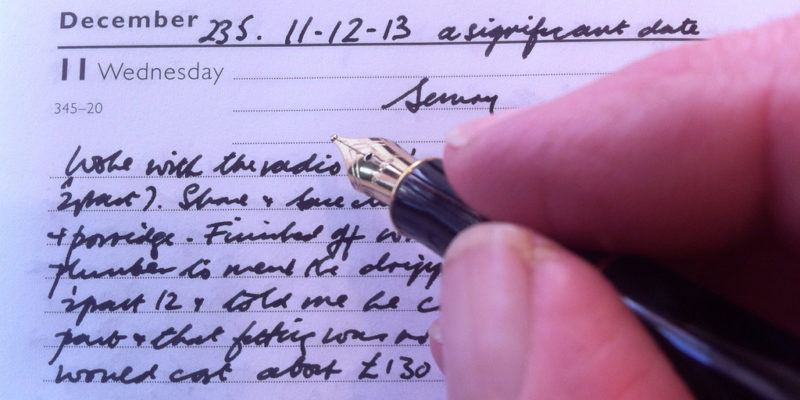 December 235. 11-12-13 a significant date
11 Wednesday
345-20
Woke with the radio
½ past 7. Shave &
& porridge. Finished off
plumber to mend the
½ past 12 & told me he
part & that fitting was
would cost about £130